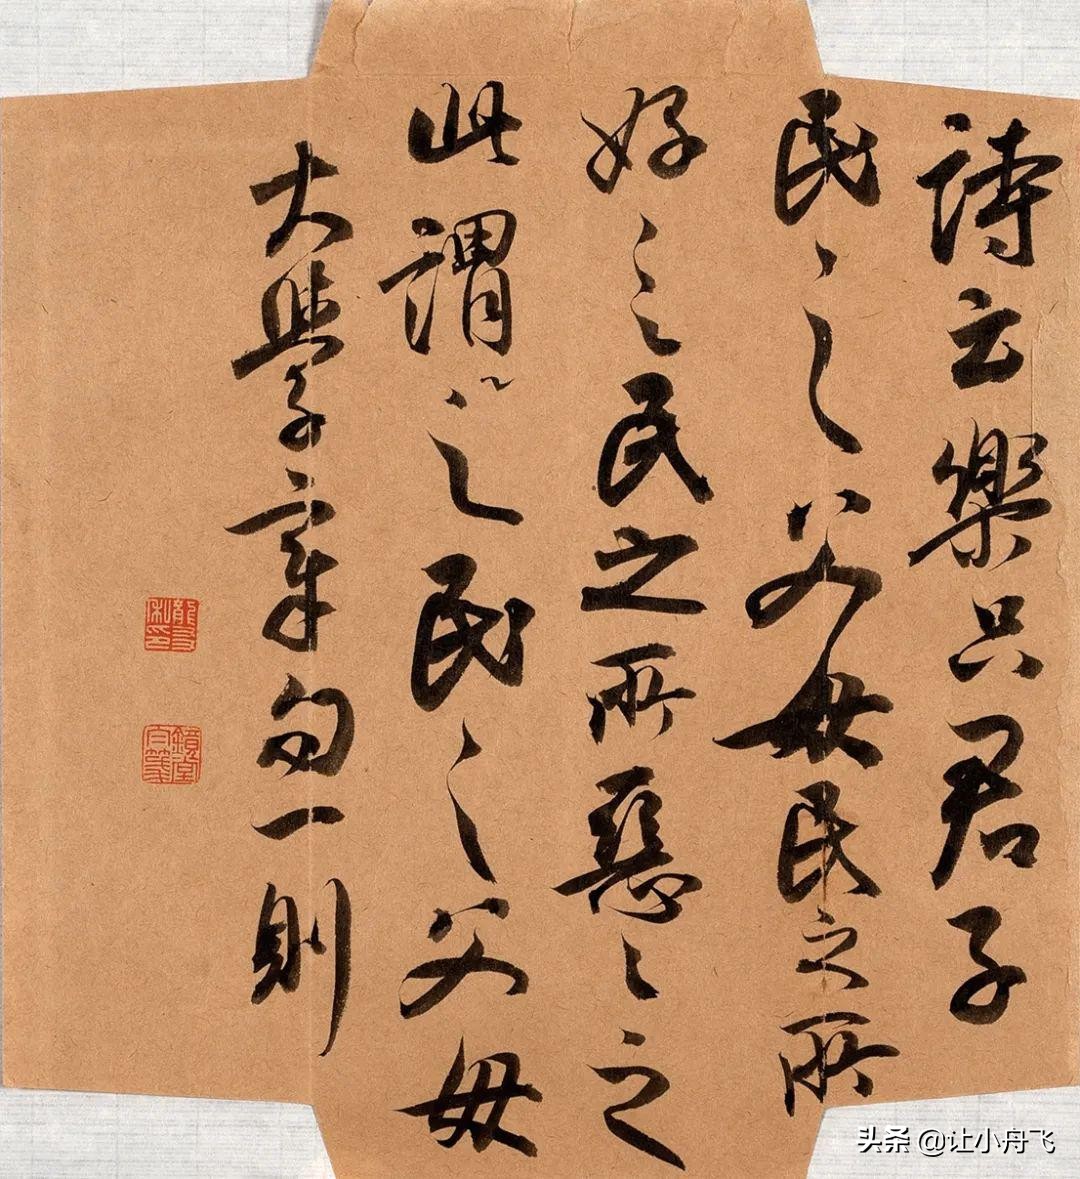 詩云樂只君子
民之父母民之所
好〻之民之所惡〻之
此謂之民之父母
大學章句一則
头条 @让小舟飞